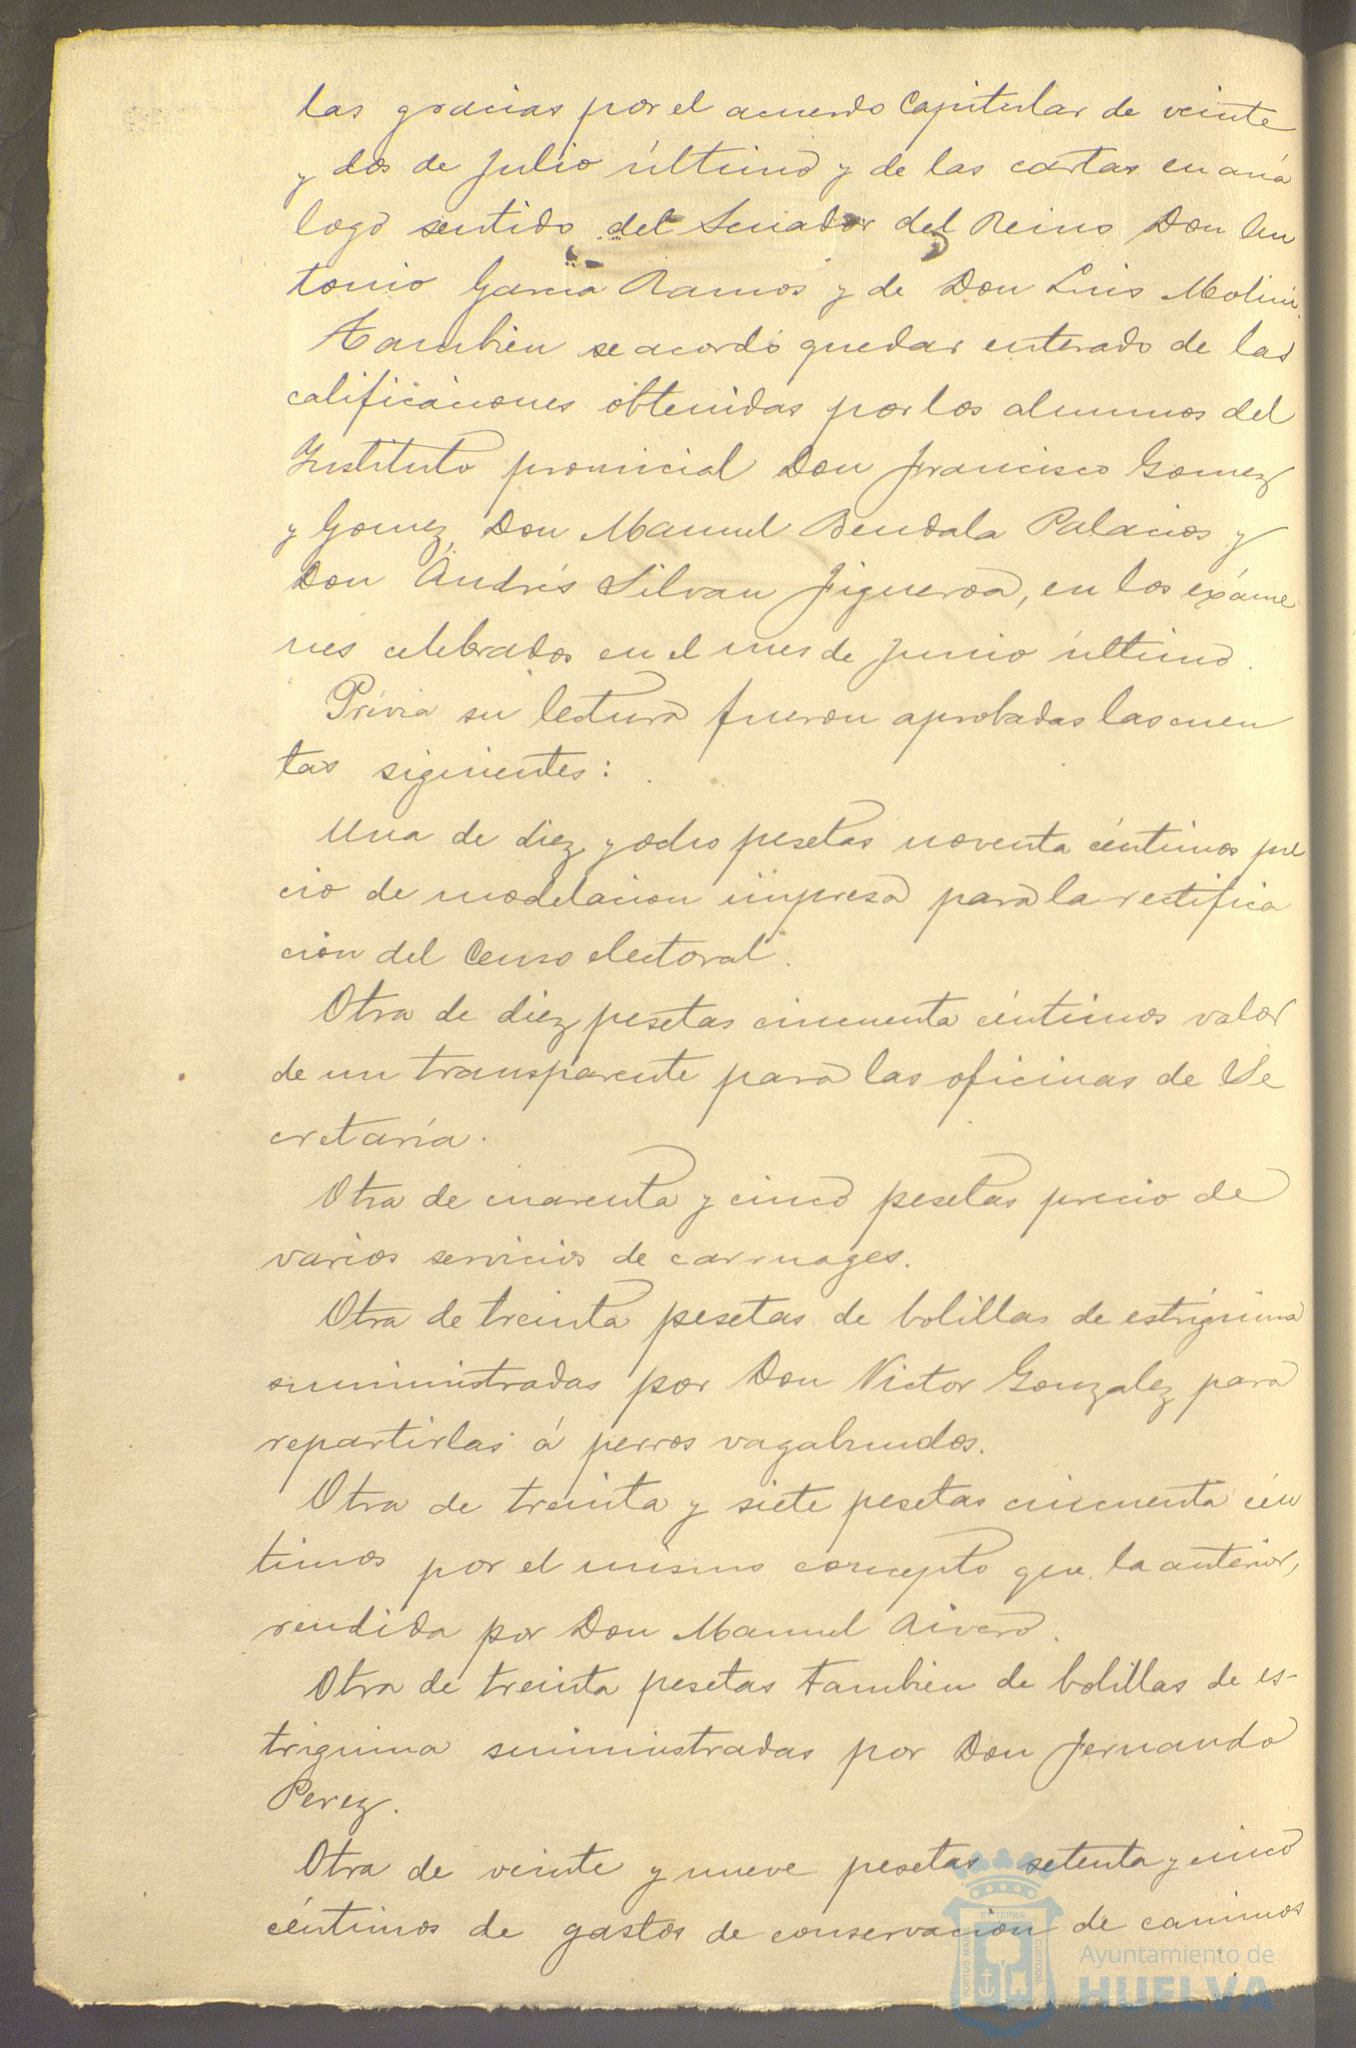 las gracias por el acuerdo Capitular de veinte
y dos de Julio último y de las cartas en aná
logo sentido del Senador del Reino Don An
tonio García Ramos y de Don Luis Molini.
También se acordó quedar enterado de las
calificaciones obtenidas por los alumnos del
Instituto provincial Don Francisco Gomez
y Gomez, Don Manuel Bendala Palacios y
Don Andrés Silvan Figueroa, en los exáme
nes celebrados en el mes de Junio último.
Prévia su lectura fueron aprobadas las cuen
tas siguientes:
Una de diez y ocho pesetas noventa céntimos pre
cio de modelacion impresa para la rectifica
ción del Censo electoral.
Otra de diez pesetas cincuenta céntimos valor
de un transparente para las oficinas de Se
cretaría.
Otra de cuarenta y cinco pesetas precio de
varios servicios de carruages.
Otra de treinta pesetas de bolillas de estrignina
suministradas por Don Victor Gonzalez para
repartirlas á perros vagabundos.
Otra de treinta y siete pesetas cincuenta cén
timos por el mismo concepto que la anterior,
rendida por Don Manuel
Otra de treinta pesetas también de bolillas de es-
trignina suministradas por Don Fernando
Perez.
Otra de veinte y nueve pesetas setenta y cinco
céntimos de gastos de conservación de caminos
Ayuntamiento de
HUELVA